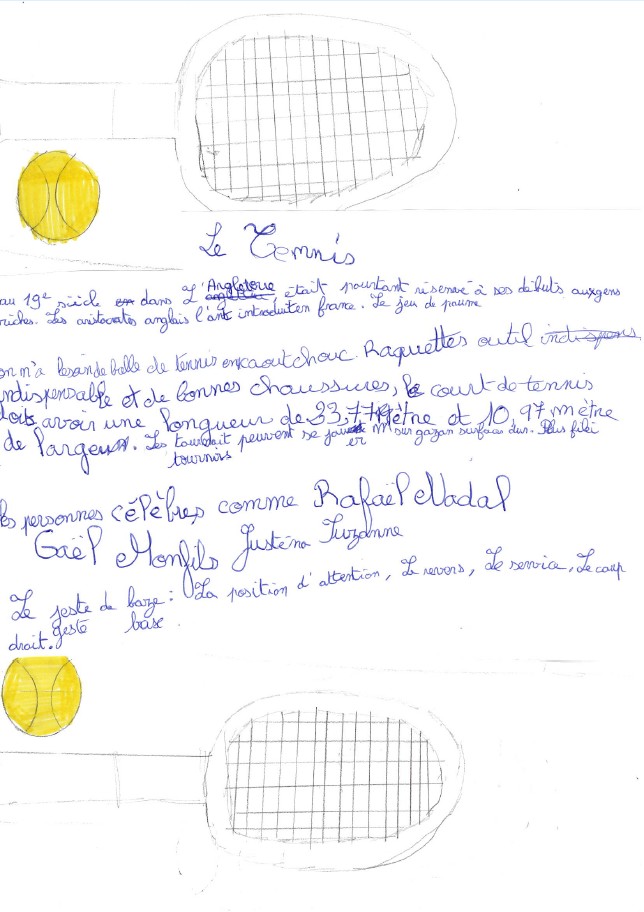 Le Tennis
au 19e siècle en dans L'Angleterre était pourtant réservé à ses débuts aux gens
riches. Les aristocrates anglais l'ont introduit en france. Le jeu de paume
on n'a besoin de balle de tennis en caoutchouc. Raquettes outil
indispensable et de bonnes chaussures, le court de tennis
doit avoir une longueur de 23,77 mètre et 10,97 mètre
de largeur. Les peuvent se jouer sur gazon surface dur. Plus
tournois er
les personnes célèbres comme Rafaël Nadal
Gaël Monfils Justéna Suzanne
Le jeste de baze : La position d'attention, Le revers, Le service, Le coup
geste base
droit.